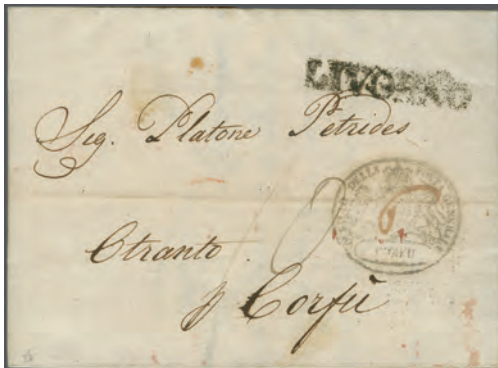 LIVORNO
Sig. Platone Petrides
Otranto
10
6
p Corfù
CORFU